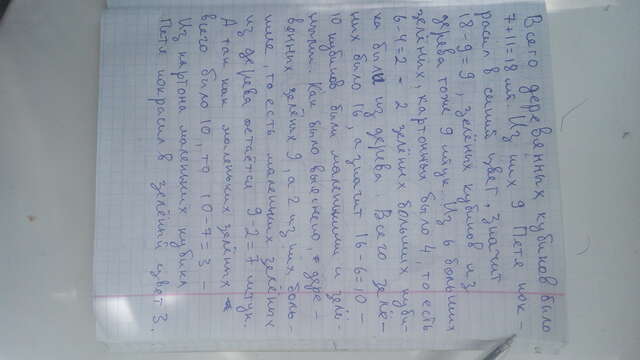 Всего деревянных кубиков было
7+11=18 шт. Из них 9 Петя пок-
расил в синий цвет, значит
18-9=9, зелёных кубиков из
дерева тоже 9 штук. Из 6 больших
зелёных, картонных было 4, то есть
6-4=2 - 2 зелёных больших куби-
ка были из дерева. Всего зелё-
ных было 16, а значит 16-6=10 -
10 кубиков были маленькими и зелё-
ными. Как было выяснено, дере-
вянных зелёных 9, а 2 из них боль-
шие, то есть маленьких зелёных
из дерева остаётся 9-2=7 штук.
А так как маленьких зелёных
всего было 10, то 10-7=3 -
Из картона маленьких кубика
Петя покрасил в зелёный цвет 3.